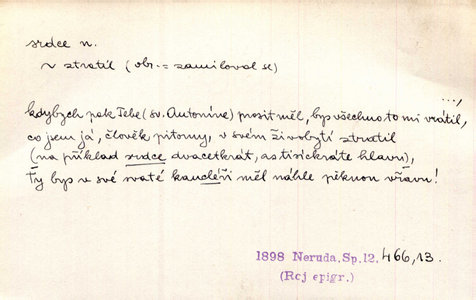 srdce n.
~ ztratil (obr. = zamiloval se)
...,
kdybych pak Tebe (sv. Antoníne) prosit měl, bys všechno to mi vrátil,
co jsem já, člověk pitomý, v svém živobytí ztratil
(na příklad srdce dvacetkrát, as tisíckráte hlavu),
Ty bys v své svaté kanceláři měl náhle pěknou vřavu!
1898 Neruda, Sp. 12. 466,13.
(Rcj epigr.)